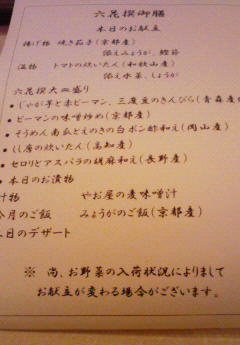 六花撰御膳
本日のお献立
揚げ物 焼き茄子(京都産)
添えみょうが、鰹節
温物 トマトの炊いたん(和歌山産)
添え水菜、しょうが
六花撰大皿盛り
• じゃが芋と赤ピーマン、三度豆のきんぴら(青森産
• ピーマンの味噌炒め(京都産)
• そうめん南瓜とえのきの白ポン酢和え(岡山産)
• しし唐の炊いたん(高知産)
• セロリとアスパラの胡麻和え(長野産)
• 本日のお漬物
汁物 やお屋の麦味噌汁
今月のご飯 みょうがのご飯(京都産)
本日のデザート
※ 尚、お野菜の入荷状況によりまして
お献立が変わる場合がございます。